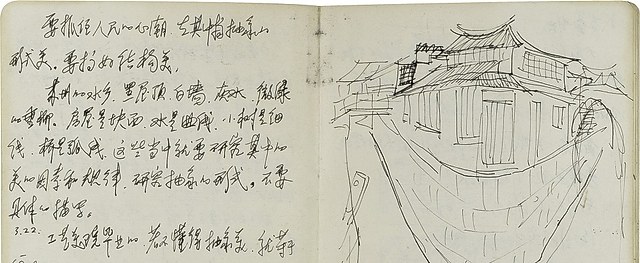 要抓住人民的心潮 尤其 抽象的
形式美,要 结构美。
苏州的水乡,黑屋顶,白墙,灰水,微绿
的垂柳,房屋是块面,水是曲线,小 是细
线,桥是弧线,这些当中就要研究其中的
美的因素和规律,研究抽象的形式,不要
具体的描写。
3.22. 工艺美院毕业的,若不懂得抽象美,就等于